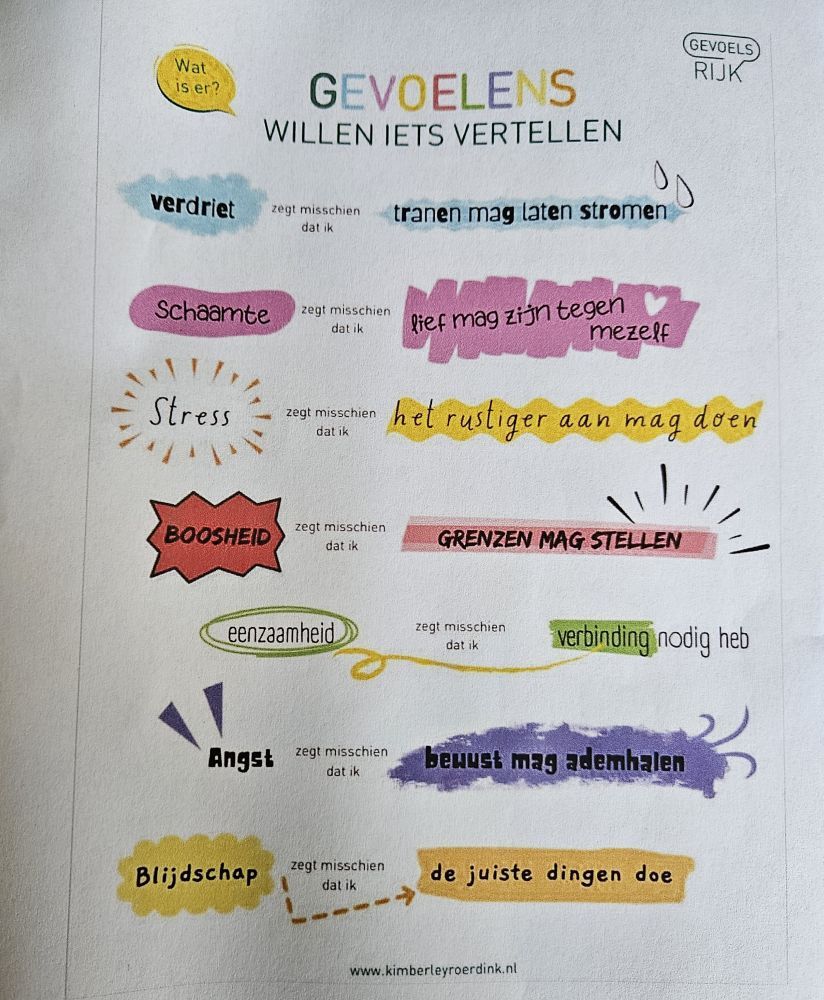 Wat
is er?
GEVOELS
RIJK
GEVOELENS
WILLEN IETS VERTELLEN
verdriet zegt misschien dat ik tranen mag laten stromen
Schaamte zegt misschien dat ik lief mag zijn tegen mezelf
Stress zegt misschien dat ik het rustiger aan mag doen
BOOSHEID zegt misschien dat ik GRENZEN MAG STELLEN
eenzaamheid zegt misschien dat ik verbinding nodig heb
Angst zegt misschien dat ik bewust mag ademhalen
Blijdschap zegt misschien dat ik de juiste dingen doe
www.kimberleyroerdink.nl